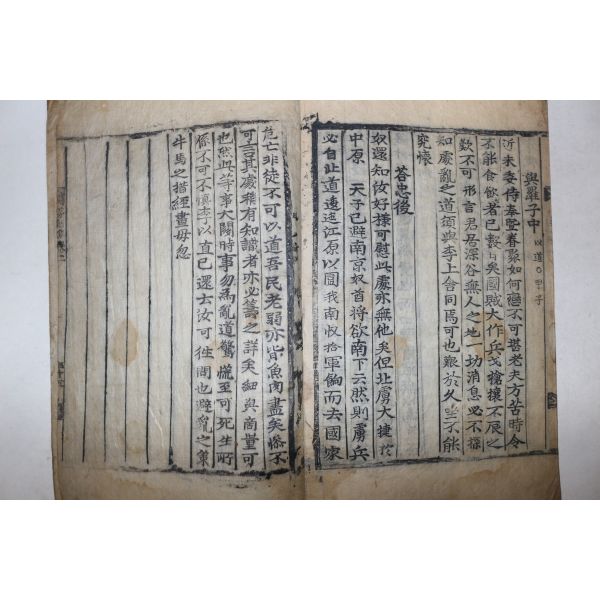 與羅子中 以道○甲子
近來奉侍奉曁眷聚如何戀不可堪老夫方苦時令
不能食飮者已數日矣國賊大作兵戈搶攘不辰之
歎不可形言君居深谷無人之地一切消息必不
知處亂之道須與李上舍同焉可也艱於久坐不能
究懷
答忠後
奴還知汝好樣可慰此處亦無他矣但北虜大捷於
中原 天子已避南京奴酋將欲南下云然則虜兵
必自北道遶江原以圖我南收拾軍餉而去國家
危亡非徒不可以道吾民老弱亦皆魚肉盡矣慘不
可言其處雖有知識者亦必籌之詳矣細與商量可
也然此等事大關時事勿爲亂道驚慌至可死生所
係不可不愼李以直已還去汝可往問也避亂之策
牛馬之措經畫毋忽